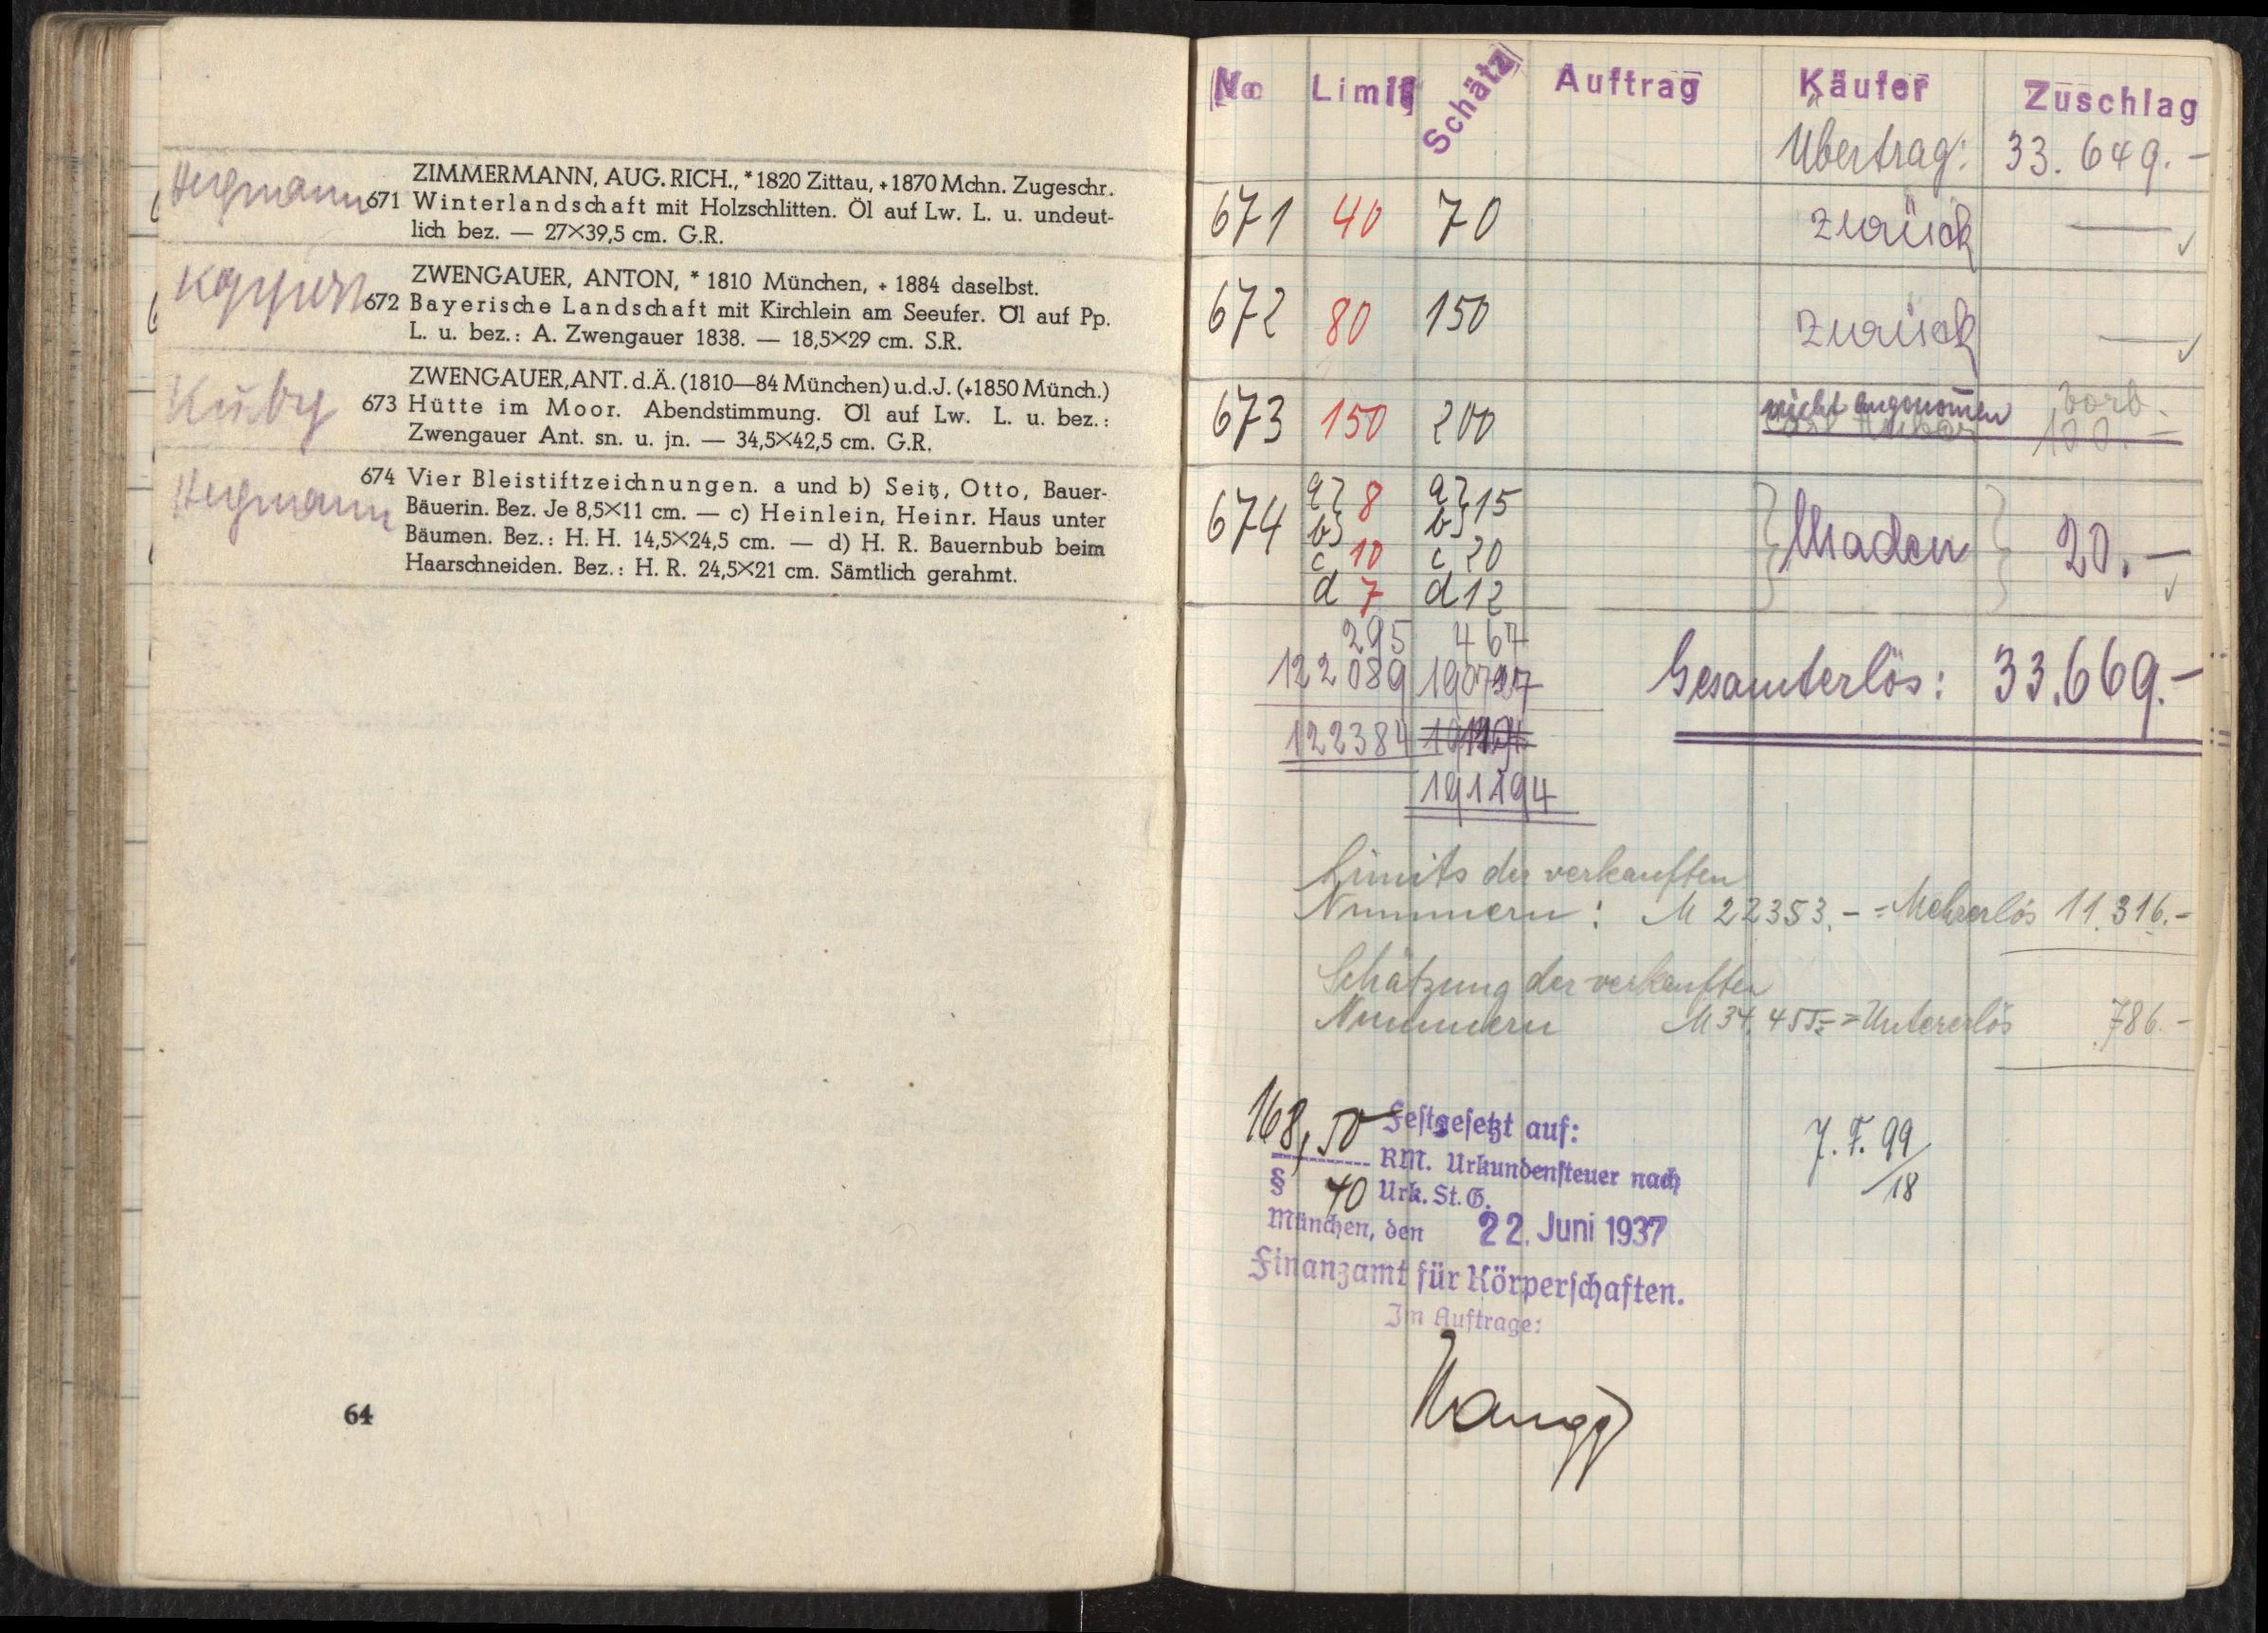 Hegmann
ZIMMERMANN, AUG. RICH., *1820 Zittau, +1870 Mchn. Zugeschr.
671 Winterlandschaft mit Holzschlitten. Öl auf Lw. L. u. undeut-
lich bez. — 27×39,5 cm. G.R.
ZWENGAUER, ANTON, * 1810 München, + 1884 daselbst.
672 Bayerische Landschaft mit Kirchlein am Seeufer. Öl auf Pp.
L. u. bez.: A. Zwengauer 1838. — 18,5×29 cm. S.R.
Kuby
ZWENGAUER, ANT. d.Ä. (1810—84 München) u.d.J. (+1850 Münch.)
673 Hütte im Moor. Abendstimmung. Öl auf Lw. L. u. bez.:
Zwengauer Ant. sn. u. jn. — 34,5×42,5 cm. G.R.
Hegmann
674 Vier Bleistiftzeichnungen. a und b) Seitz, Otto, Bauer-
Bäuerin. Bez. Je 8,5×11 cm. — c) Heinlein, Heinr. Haus unter
Bäumen. Bez.: H. H. 14,5×24,5 cm. — d) H. R. Bauernbub beim
Haarschneiden. Bez.: H. R. 24,5×21 cm. Sämtlich gerahmt.
64
No Limit Schätz Auftrag Käufer Zuschlag
Übertrag: 33.649.-
671 40 70 zurück —
672 80 150 zurück —
673 150 200 nicht angenommen vorb. 100.-
674 a) b) 8 a) b) 15 Maden 20.—
c 10 c 20
d 7 d 12
295 467
122089 190727
Gesamterlös: 33.669.-
122384
191194
Limits der verkauften
Nummern: M 22353.- = Mehrerlös 11.316.-
Schätzung der verkauften
Nummern M 34.455.- = Untererlös 786.-
168,50 Festgesetzt auf:
RM. Urkundensteuer nach
§ 40 Urk. St. G.
München, den 22. Juni 1937
Finanzamt für Körperschaften.
Im Auftrage:
J. F. 99/18